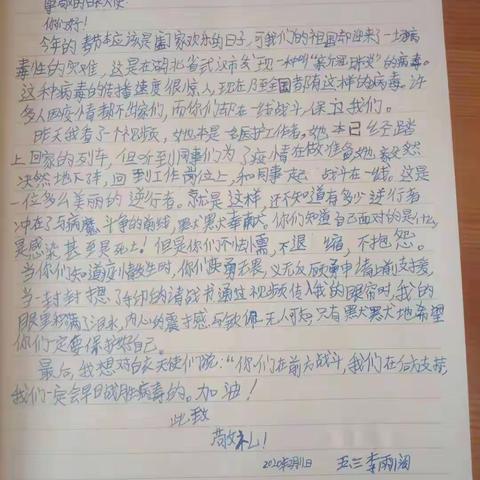 尊敬的白衣天使:
你们好!
今年的春节本应该是阖家欢乐的日子,可我们的祖国却迎来了一场病
毒性的灾难,这是在湖北省武汉市发现一种叫"新冠状"的病毒。
这种病毒的传播速度很惊人,现在乃至全国都有这样的病毒。许
多人因疫情都不出家们,而你们却在一线战斗,保卫我们。
昨天我看了个视频,她本是一名医护工作者。她本已经踏
上回家的列车,但听到同事们为了疫情在做准备她毅然
决然地下车,回到工作岗位上,和同事一起战斗在一线。这是
一位多么美丽的逆行者。就是这样,还不知道有多少逆行者
冲在了与病魔斗争的前线,默默奉献。你们知道自己面对的是什么,
是感染甚至是死亡!但是你们不怯懦,不退缩,不抱怨。
当你们知道疫情发生时,你们英勇无畏,义无反顾申请前去支援,
当一封封摁了手印的请战书通过视频传入我的眼帘时,我的
眼里积满了泪水,内心的震撼感导致你无人可挡,只有默默地希望
你们一定要保护好自己。
最后,我想对白衣天使们说:"你们在前方战斗,我们在后方支持,
我们一定会早日战胜病毒的。加油!
此致
敬礼!
2020年2月1日 五三 李雨润